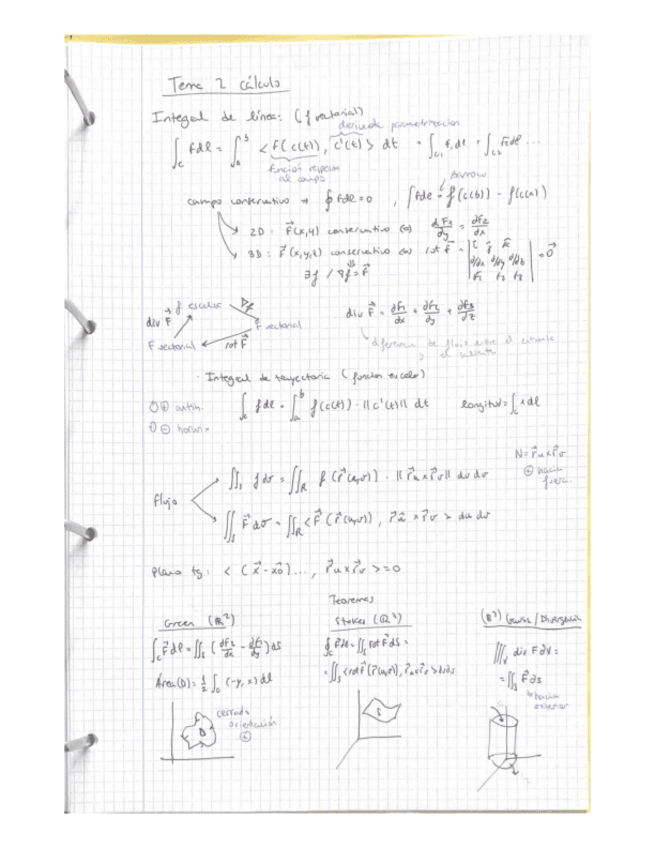 Tema 2 cálculo
Integral de línea: (f vectorial)
derivada parametrización
∫_C F dl = ∫_a^b < F(c(t)), c'(t) > dt = ∫_{C1} F₁ dl + ∫_{C2} F₂ dl ...
función respecto
al campo
Barrow
campo conservativo → ∮ F dl = 0 , ∫ F dl = f(c(b)) - f(c(a))
2D: F⃗(x,y) conservativo ⇔ dF1/dy = dF2/dx
3D: F⃗(x,y,z) conservativo ⇔ rot F⃗ = | i j k ; d/dx d/dy d/dz ; F1 F2 F3 | = 0⃗
∃f / ∇f = F⃗
f escalar ∇f
div F⃗ F vectorial
F vectorial rot F⃗
div F⃗ = dF1/dx + dF2/dy + dF3/dz
diferencia de flujo entre el entrante
y el saliente
· Integral de trayectoria (función escalar)
⊕ antih.
⊖ horario
∫_C f dl = ∫_a^b f(c(t)) · ||c'(t)|| dt longitud = ∫_C 1 dl
N = r⃗u × r⃗v
⊕ hacia
fuera.
Flujo
∬_S f dσ = ∬_R f(r⃗(u,v)) · ||r⃗u × r⃗v|| du dv
∬_S F⃗ dσ = ∬_R < F⃗(r⃗(u,v)), r⃗u × r⃗v > du dv
Plano tg: < (x⃗ - x⃗0) ..., r⃗u × r⃗v > = 0
Teoremas
Green (R²)
∫_C F⃗ dl = ∬_S (dF2/dx - dF1/dy) dS
Área(D) = 1/2 ∫_C (-y, x) dl
cerrado
orientación
⊕
D
Stokes (R³)
∮_C F⃗ dl = ∬_S rot F⃗ dS =
= ∬_S < rot F⃗(r⃗(u,v)), r⃗u × r⃗v > du dv
S
(R³) Gauss / Divergencia
∭_V div F dV =
= ∬_S F⃗ ds
hacia
exterior